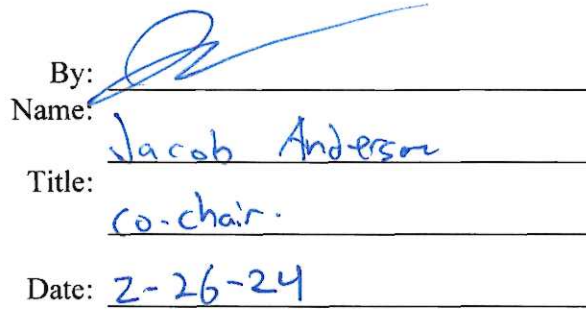 By:
Name:
Jacob Anderson
Title:
co-chair.
Date: 2-26-24